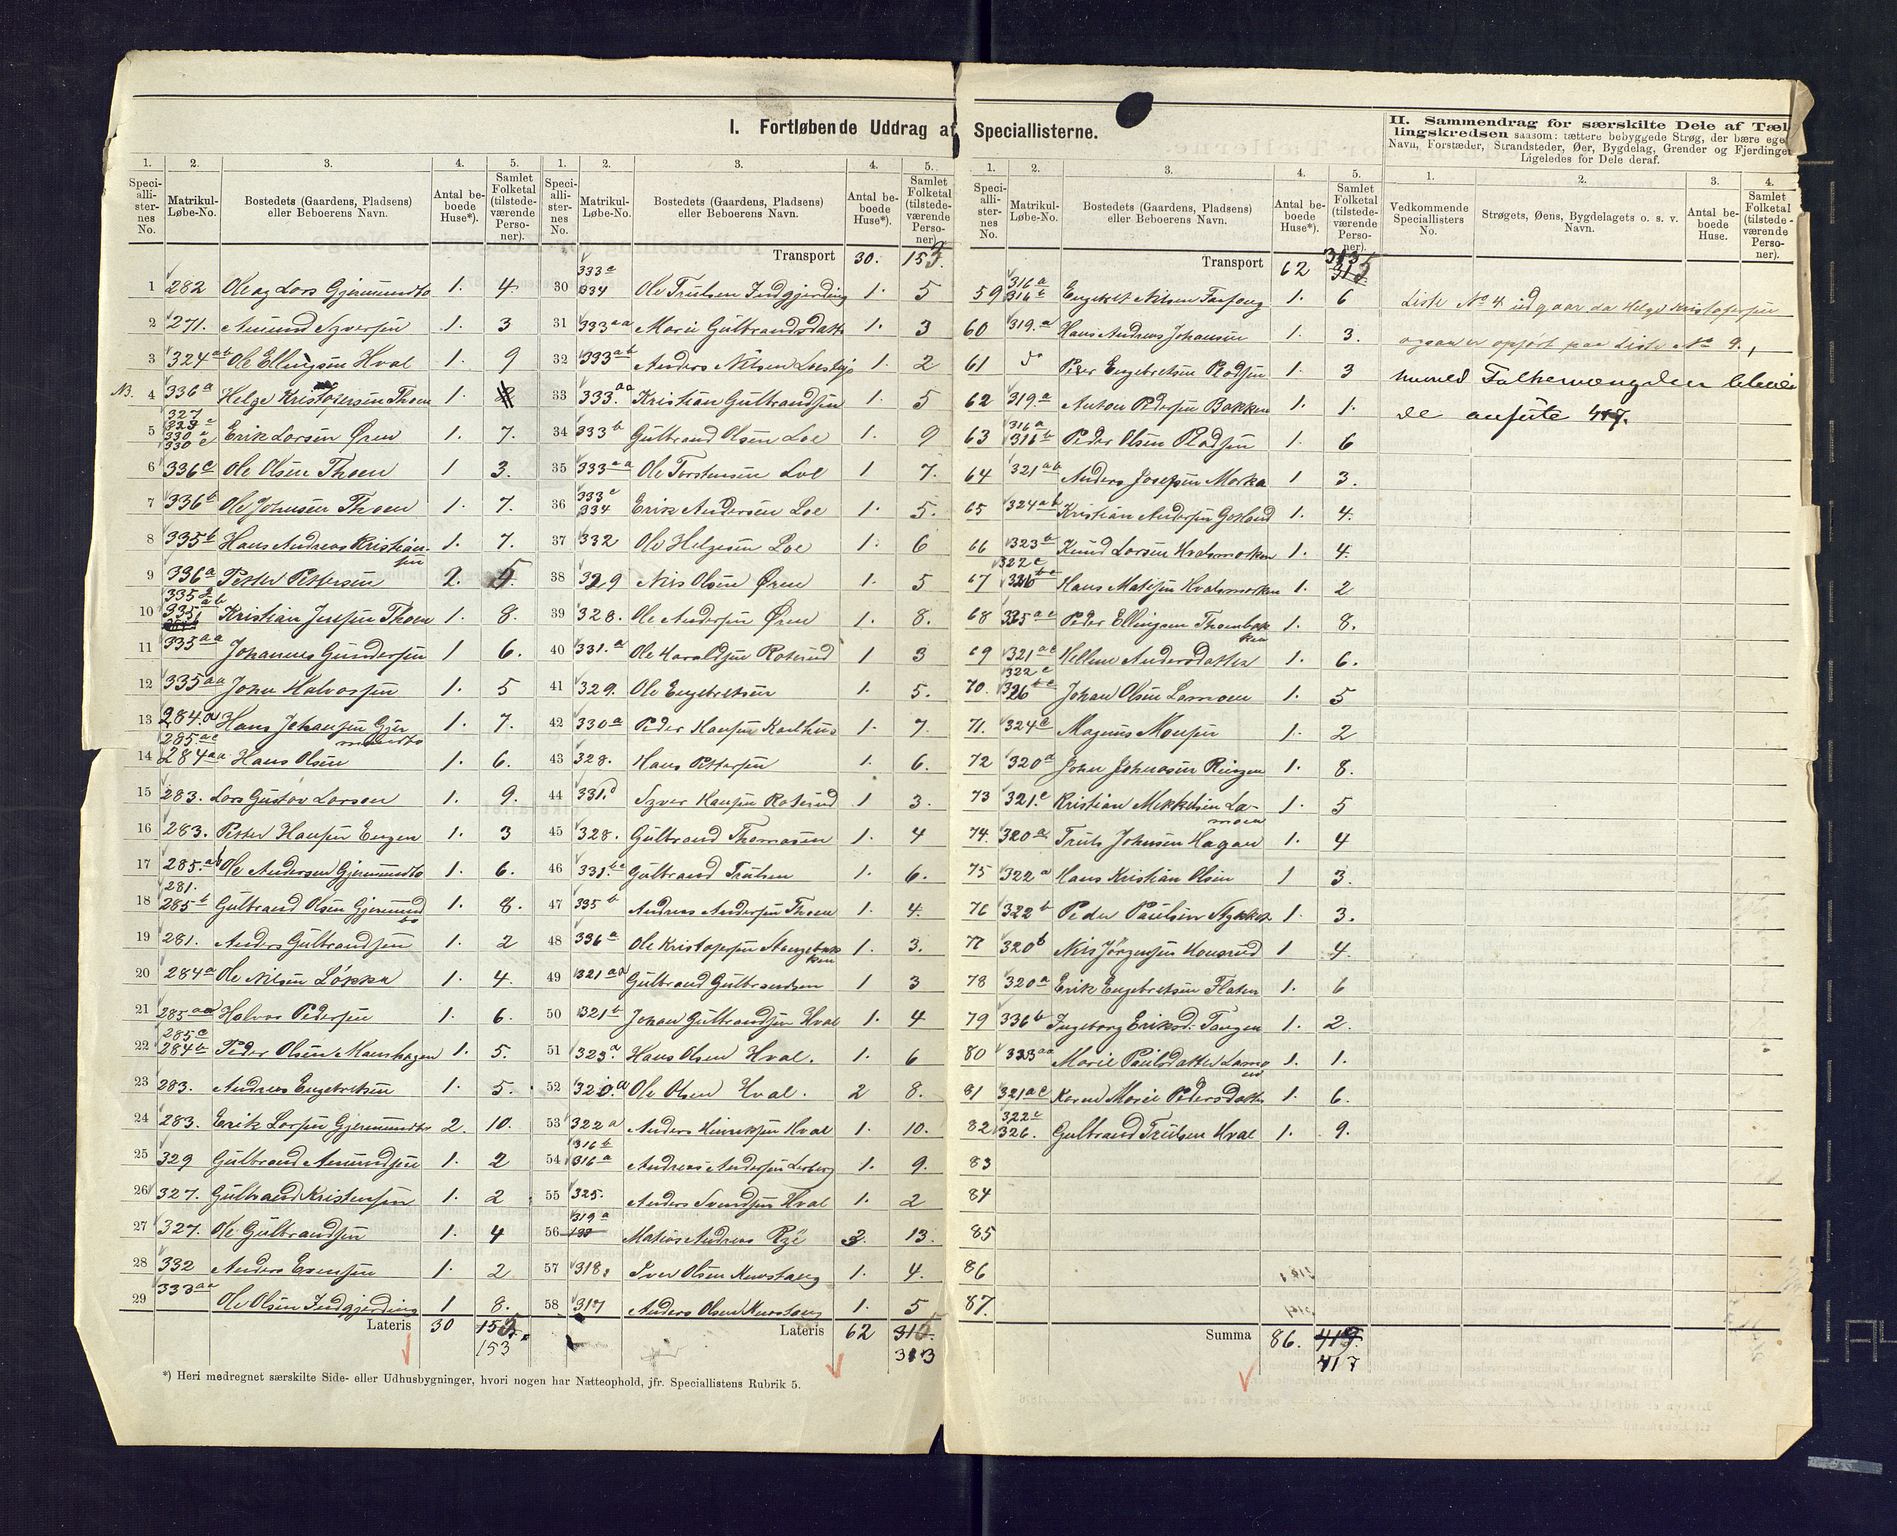 I. Fortløbende Uddrag af Speciallisterne.
II. Sammendrag for særskilte Dele af Tællingskredsen saasom: tættere bebyggede Strøg, der bære eget Navn, Forstæder, Strandsteder, Øer, Bygdelag, Grender og Fjerdinger. Ligeledes for Dele deraf.
1. 2. 3. 4. 5. 1. 2. 3. 4. 5. 1. 2. 3. 4. 5. 1. 2. 3. 4.
Speciallisternes No. Matrikul-Løbe-No. Bostedets (Gaardens, Pladsens) eller Beboerens Navn. Antal beboede Huse*). Samlet Folketal (tilstedeværende Personer).
1 282 Ole og Lars Gjermundbo 1. 4.
2 271. Amund Syversen 1. 3
3 324ab Ole Ellingsen Hval 1. 9
NB. 4 336a Helge Kristofersen Thoen 1.
5 327 328c 330a 330c Erik Larsen Øren 1. 7.
6 336c Ole Olsen Thoen 1 3.
7 336b Ole Johnsen Thoen 1. 7.
8 335b Hans Andreas Kristiansen 1. 7.
9 336a Petter Pettersen 2. 5
10 Kristian Josefsen Thoen 1. 8.
11 335aa Johannes Gundersen 1 6.
12 335aa John Halvorsen 1. 5
13 284.a Hans Johansen Gjermundbo 1. 7.
14 285ac 284aa Hans Olsen 1. 6.
15 283. Lars Gustav Larsen 1. 9.
16 283. Petter Hansen Engen 1. 3
17 285.ab Ole Andersen Gjermundbo 1. 6.
18 281. 285b Gulbrand Olsen Gjermundbo 1. 8.
19 281. Anders Gulbrandsen 1. 2
20 284a Ole Nilsen Løkka 1. 4.
21 285aa Halvor Pedersen 1. 6.
22 285c 284b Peder Olsen Manshagen 1. 5.
23 283. Andreas Engebretsen 1. 5.
24 283. Erik Larsen Gjermundbo 2. 10.
25 329 Gulbrand Amundsen 1. 2
26 327. Gulbrand Kristensen 1. 2
27 327. Ole Gulbrandsen 1. 4
28 332 Anders Evensen 1. 2
29 333aa Ole Olsen Indgjerdingen 1 8.
Lateris 30 155. 153
Transport 30. 153.
30 333c 334 Ole Trulsen Indgjerding 1. 5
31 333aa Marie Gulbrandsdatter 1. 3
32 333ab Anders Nilsen 1. 2
33 333.aa Kristian Gulbrandsen 1. 5
34 333b Gulbrand Olsen Loe 1. 9
35 333aa Ole Torstensen Loe 1 7.
36 333c 334 Erik Andersen Loe 1. 5.
37 332 Ole Helgesen Loe 1. 6
38 329 Nils Olsen Øren 1. 5
39 328. Ole Andersen Øren 1. 8.
40 331.a Ole Haraldsen Roterud 1 3
41 329. Ole Engebretsen 1. 5.
42 330a Peder Hansen Kasthus 1. 7.
43 328. Hans Pettersen 1. 6.
44 331.d Syver Hansen Roterud 1 3.
45 328. Gulbrand Thomasen 1. 4
46 331.bc Gulbrand Trulsen 1. 6.
47 335b Andreas Andersen Thoen 1. 4.
48 336a Ole Kristofersen Stangebakken 1. 3.
49 321aa Gulbrand Gulbrandsen 1 3
50 321b Johan Gulbrandsen Hval 1. 4
51 323.a Hans Olsen Hval. 1. 6
52 320.a Ole Olsen Hval. 2 8.
53 322a Anders Henriksen Hval 1. 10.
54 316b 316a Andreas Andersen Lerberg 1. 9.
55 325. Anders Svendsen Hval 1. 2
56 319a Matias Andreas Rye 3. 13.
57 318. Iver Olsen Kurstang 1. 4.
58 317 Anders Olsen Kurstang 1. 5
Lateris 62 315. 313
Transport 62 313 315
59 316a 316b Engebret Nilsen Farfang 1. 6
60 319.a Hans Andreas Johansen 1. 3.
61 do Peder Engebretsen Rodsen 1. 3
62 319.a Anton Pedersen Bakken 1. 1.
63 316a 316b Peder Olsen Rodsen 1. 6
64 321ab Anders Josefsen Morka 1 3.
65 324ab Kristian Andersen 1. 4.
66 323b Knud Larsen Hvalsmorken 1. 4.
67 322c 326bc Hans Matisen Hvalsmorken 1. 2
68 335ac Peder Ellingsen Thoenbakken 1. 8.
69 321ac Hellene Andersdatter 1. 6.
70. 322c 326bc Johan Olsen Lamoen 1. 5
71. 324c Magnus Monsen 1. 2
72 320a John Johnsen Ringen 1. 8.
73 321.c Kristian Mikkelsen Lamoen 1. 5
74. 320a Truls Johnsen Hagan 1. 4
75 322a Hans Kristian Olsen 1 3.
76 322b Peder Paulsen Stykket 1. 3.
77 320b Nils Jörgensen Honerud 1 4
78 320a Erik Engebretsen Flaten 1. 6
79 336b Ingeborg Eriksd. Tangen 1. 2.
80 323aa Marie Paulsdatter Lamoen 1. 1.
81 321ac Karen Marie Pedersdatter 1. 6.
82 322c 326. Gulbrand Trulsen Hval 1. 9.
83
84
85
86
87.
Summa 86. 419. 417
Vedkommende Speciallisters No. Strøgets, Øens, Bygdelagets o. s. v. Navn. Antal beboede Huse. Samlet Folketal (tilstedeværende Personer).
Liste No 4 udgaar da Helge Kristofersen
ogsaa er opført paa Liste No 9.,
hvorved Folkemængden bliver
de anførte 417.
*) Heri medregnet særskilte Side- eller Udhusbygninger, hvori nogen har Natteophold, jfr. Speciallistens Rubrik 5.